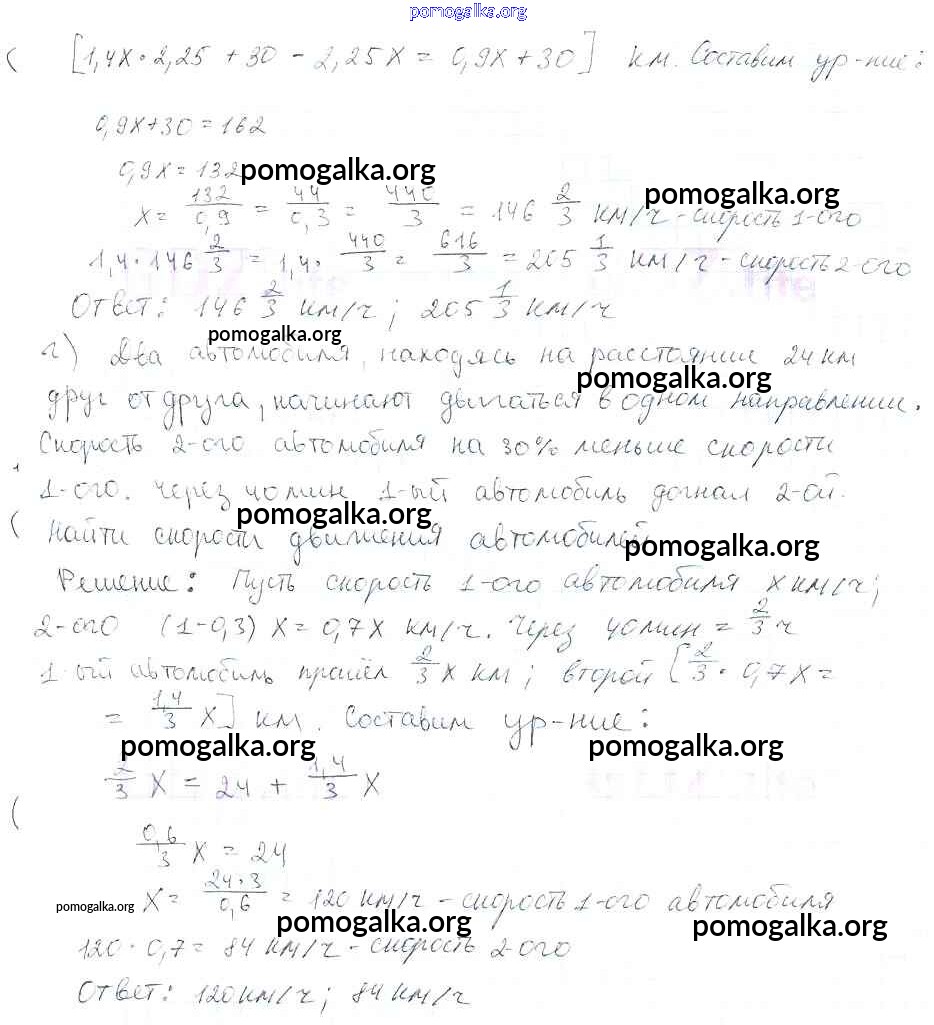 pomogalka.org
[1,4x·2,25 + 30 - 2,25x = 0,9x + 30] км. Составим ур-ние:
0,9x+30 = 162
0,9x = 132
pomogalka.org
pomogalka.org
x = 132/0,9 = 44/0,3 = 440/3 = 146 2/3 км/ч - скорость 1-ого
1,4·146 2/3 = 1,4· 440/3 = 616/3 = 205 1/3 км/ч - скорость 2-ого
Ответ: 146 2/3 км/ч; 205 1/3 км/ч
pomogalka.org
г) Два автомобиля, находясь на расстоянии 24 км
pomogalka.org
друг от друга, начинают двигаться в одном направлении.
Скорость 2-ого автомобиля на 30% меньше скорости
1-ого. Через 40 мин 1-ый автомобиль догнал 2-ой.
pomogalka.org
Найти скорости движения автомобилей
pomogalka.org
Решение: Пусть скорость 1-ого автомобиля x км/ч;
2-ого (1-0,3) x = 0,7x км/ч. Через 40 мин = 2/3 ч
1-ый автомобиль прошёл 2/3 x км; второй [2/3 · 0,7x =
= 1,4/3 x] км. Составим ур-ние:
pomogalka.org
pomogalka.org
2/3 x = 24 + 1,4/3 x
0,6/3 x = 24
x = 24·3/0,6 = 120 км/ч - скорость 1-ого автомобиля
pomogalka.org
pomogalka.org
pomogalka.org
120 · 0,7 = 84 км/ч - скорость 2-ого
Ответ: 120 км/ч; 84 км/ч